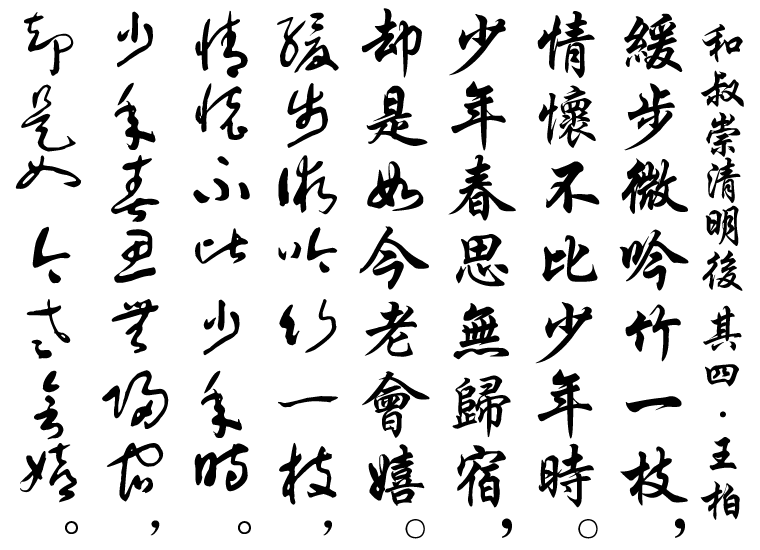 和叔崇清明後 其四．王柏
緩步微吟竹一枝，
情懷不比少年時。
少年春思無歸宿，
却是如今老會嬉。
緩步微吟竹一枝，
情懷不比少年時。
少年春思無歸宿，
却是如今老會嬉。